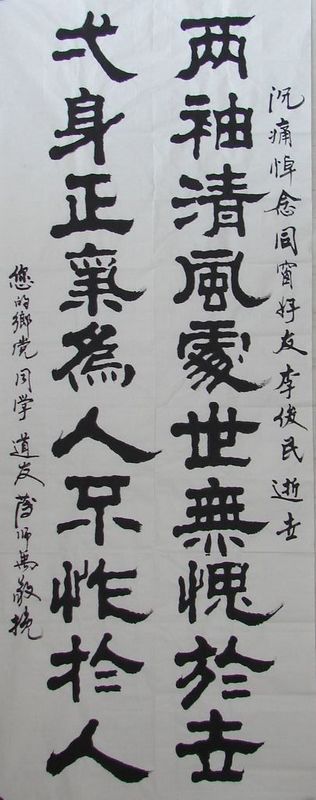 沉痛悼念同窗好友李俊民逝世
两袖清風處世無愧於世
弌身正氣為人不怍於人
您的鄉党同学道友师敬挽